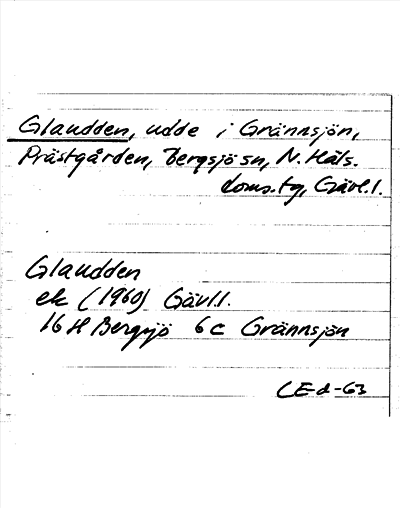 Glaudden, udde i Grännsjön,
Prästgården, Bergsjö sn, N. Häls.
doms.tg, Gävl.l.
Glaudden
ek (1960) Gävl.l.
16 H Bergsjö 6 c Grännsjön
CEd-63